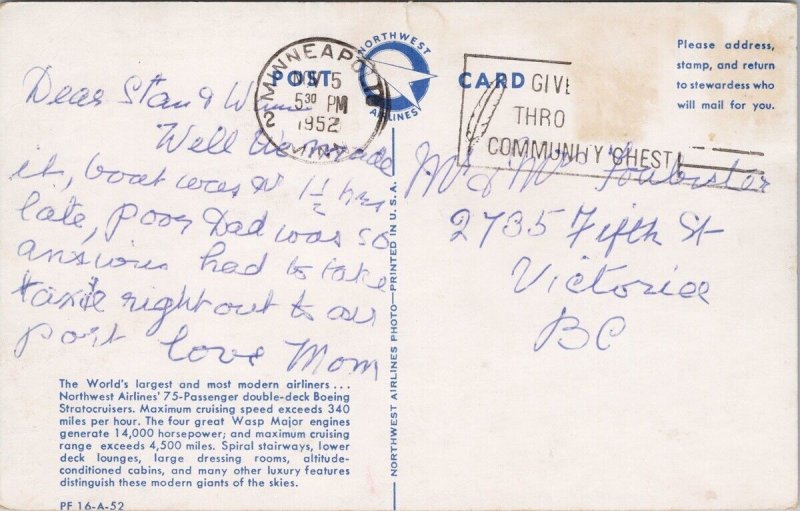 POST CARD
NORTHWEST
AIRLINES
MINNEAPOLI
2
NOV 5
5 30 PM
1952
MINN
GIVE
THRO
COMMUNITY CHEST
Please address,
stamp, and return
to stewardess who
will mail for you.
Dear Stan &
Well We made
it, boat was 1 1/2 hrs
late, poor Dad was so
anxious had to take
taxie right out to air
port love Mom
Mr & Mrs Foubister
2735 Fifth St
Victoria
BC
NORTHWEST AIRLINES PHOTO—PRINTED IN U.S.A.
The World's largest and most modern airliners...
Northwest Airlines' 75-Passenger double-deck Boeing
Stratocruisers. Maximum cruising speed exceeds 340
miles per hour. The four great Wasp Major engines
generate 14,000 horsepower; and maximum cruising
range exceeds 4,500 miles. Spiral stairways, lower
deck lounges, large dressing rooms, altitude-
conditioned cabins, and many other luxury features
distinguish these modern giants of the skies.
PF 16-A-52